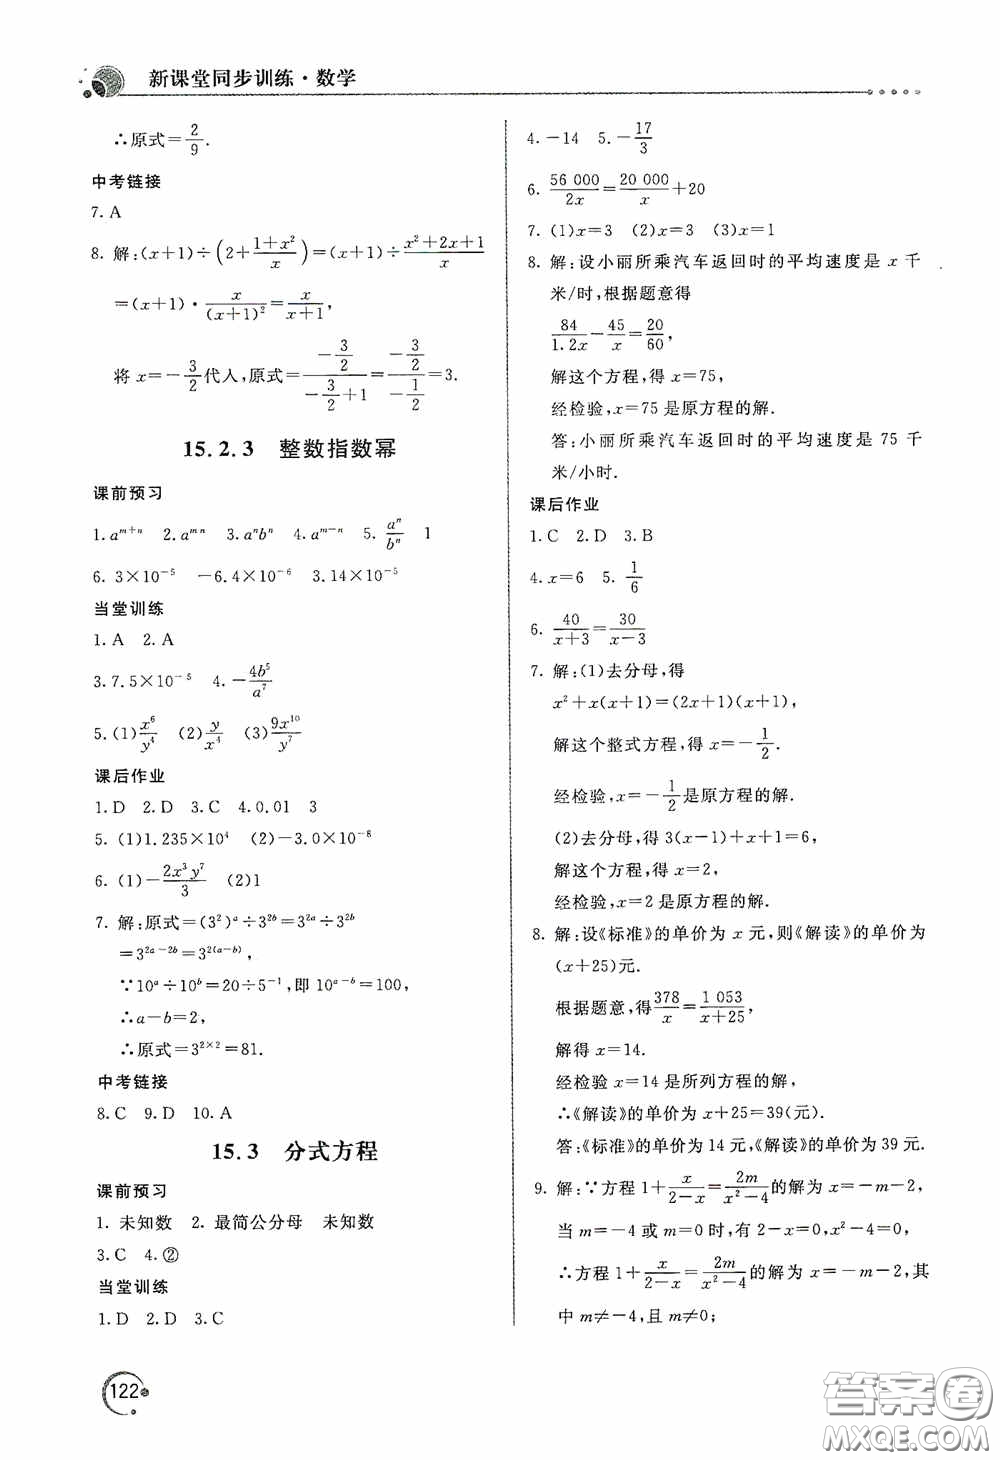 新课堂同步训练·数学
∴原式=2/9.
中考链接
7. A
8. 解:(x+1)÷(2+(1+x²)/x)=(x+1)÷(x²+2x+1)/x
=(x+1)·x/(x+1)²=x/(x+1),
将 x=-3/2代人,原式=(-3/2)/(-3/2+1)=(-3/2)/(-1/2)=3.
15.2.3 整数指数幂
课前预习
1. a^(m+n) 2. a^(mn) 3. aⁿbⁿ 4. a^(m-n) 5. aⁿ/bⁿ 1
6. 3×10⁻⁵ -6.4×10⁻⁶ 3.14×10⁻⁵
当堂训练
1. A 2. A
3. 7.5×10⁻⁵ 4. -4b⁵/a⁷
5. (1)x⁶/y⁴ (2)y/x⁴ (3)9x¹⁰/y⁷
课后作业
1. D 2. D 3. C 4. 0.01 3
5. (1)1.235×10⁴ (2)-3.0×10⁻⁸
6. (1)-2x³y⁷/3 (2)1
7. 解:原式=(3²)ᵃ÷3^(2b)=3^(2a)÷3^(2b)
=3^(2a-2b)=3^(2(a-b)),
∵10ᵃ÷10ᵇ=20÷5⁻¹,即 10^(a-b)=100,
∴a-b=2,
∴原式=3^(2×2)=81.
中考链接
8. C 9. D 10. A
15.3 分式方程
课前预习
1. 未知数 2. 最简公分母 未知数
3. C 4. ②
当堂训练
1. D 2. D 3. C
4. -14 5. -17/3
6. 56 000/2x=20 000/x+20
7. (1)x=3 (2)x=3 (3)x=1
8. 解:设小丽所乘汽车返回时的平均速度是 x 千
米/时,根据题意得
84/1.2x-45/x=20/60,
解这个方程,得 x=75,
经检验,x=75 是原方程的解.
答:小丽所乘汽车返回时的平均速度是 75 千
米/小时.
课后作业
1. C 2. D 3. B
4. x=6 5. 1/6
6. 40/(x+3)=30/(x-3)
7. 解:(1)去分母,得
x²+x(x+1)=(2x+1)(x+1),
解这个整式方程,得 x=-1/2.
经检验,x=-1/2是原方程的解.
(2)去分母,得 3(x-1)+x+1=6,
解这个方程,得 x=2,
经检验,x=2 是原方程的解.
8. 解:设《标准》的单价为 x 元,则《解读》的单价为
(x+25)元.
根据题意,得378/x=1 053/(x+25),
解得 x=14.
经检验 x=14 是所列方程的解,
∴《解读》的单价为 x+25=39(元).
答:《标准》的单价为 14 元,《解读》的单价为 39 元.
9. 解:∵方程 1+x/(2-x)=2m/(x²-4)的解为 x=-m-2,
当 m=-4 或 m=0 时,有 2-x=0,x²-4=0,
∴方程 1+x/(2-x)=2m/(x²-4)的解为 x=-m-2,其
中 m≠-4,且 m≠0;
122
答案卷
MXQE.COM